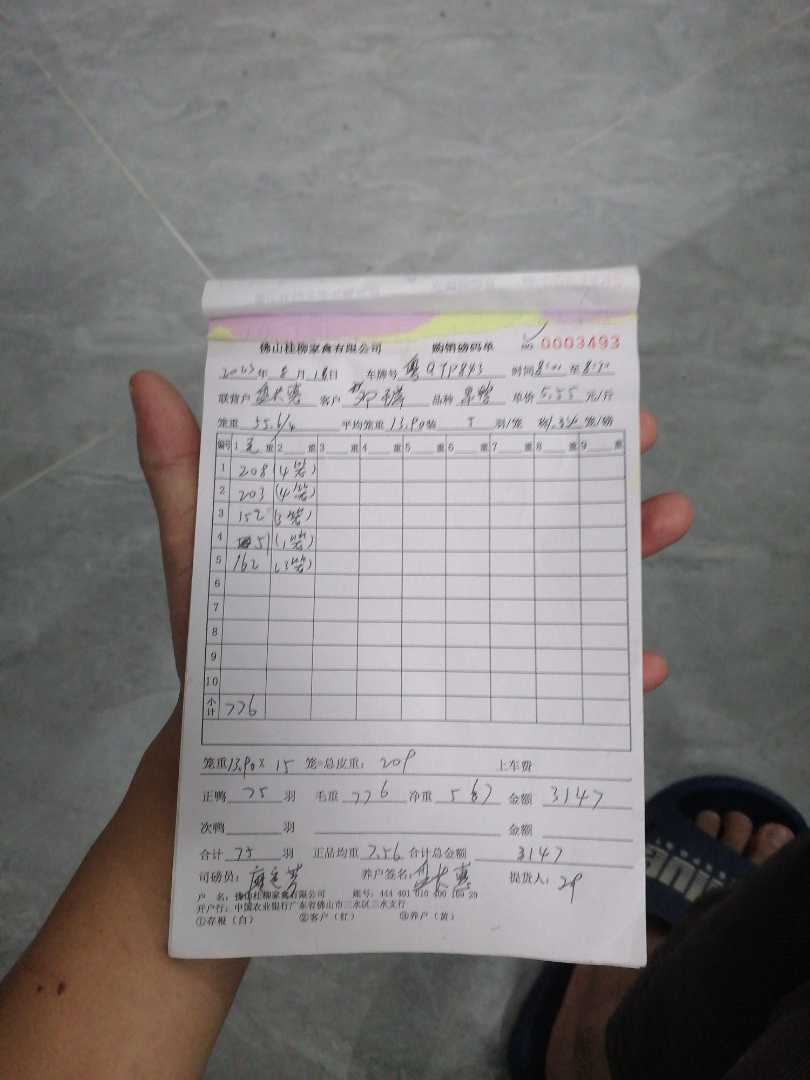 佛山桂柳家禽有限公司 购销磅码单 NO 0003493
2023年 8月18日 车牌号 粤QTP843 时间8:00至8:20
联营户 客户 邓 品种 单价5.55元/斤
笼重 55.6/4 平均笼重13.90 5羽/笼 称 笼/磅
编号 1毛重 2重 3重 4重 5重 6重 7重 8重 9重
1 208 (4笼)
2 203 (4笼)
3 152 (3笼)
4 51 (1笼)
5 162 (3笼)
6
7
8
9
10
小计 776
笼重13.90×15笼=总皮重: 209 上车费
正鸭 75 羽 毛重 776 净重 567 金额 3147
次鸭 羽 金额
合计 75 羽 正品均重 7.56 合计总金额 3147
司磅员: 养户签名: 提货人:
户 名:佛山桂柳家禽有限公司 账号:
开户行:中国农业银行广东省佛山市三水区三水支行
①存根(白) ②客户(红) ③养户(黄)